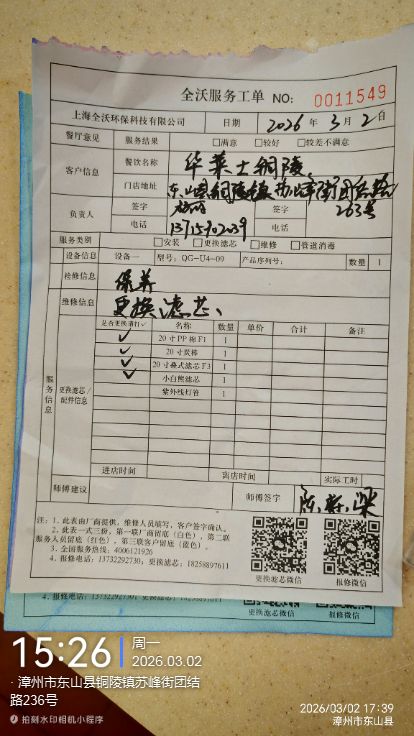 全沃服务工单 NO: 0011549
上海全沃环保科技有限公司 日期 2026年3月2日
餐厅意见 服务结果 □满意 □较好 □较差不满意
客户信息 餐饮名称 华莱士铜陵
门店地址 东山县铜陵镇苏峰街团结路
263号
负责人 签字 签字
电话 13715902039 电话
服务类别 □安装 □更换滤芯 □维修 □管道消毒
设备信息 设备一 型号: QG-U4-09 产品序列号: 数量 1
检修信息 保养
维修信息 更换滤芯、
服务信息 更换滤芯/配件信息
是否更换请打✓ 名称 数量 单价 合计 备注
✓ 20寸PP棉F1 1
✓ 20寸炭棒 1
✓ 20寸叠式滤芯F3 1
✓ 小白熊滤芯 1
紫外线灯管 1
进店时间 离店时间 实际工时
师傅建议 师傅签字 陈
注: 1. 此表由厂商提供, 维修人员填写, 客户签字确认。
2. 此表一式三份, 第一联厂商留底(白色), 第二联
服务人员留底(红色), 第三联客户留底(蓝色)。
3. 全国服务热线: 4006121926
4. 报修电话: 13732292730; 更换滤芯: 18258897611
更换滤芯微信 报修微信
更换滤芯微信 报修微信
15:26 周一
2026.03.02
· 漳州市东山县铜陵镇苏峰街团结
路236号
拍刻水印相机小程序
2026/03/02 17:39
漳州市东山县